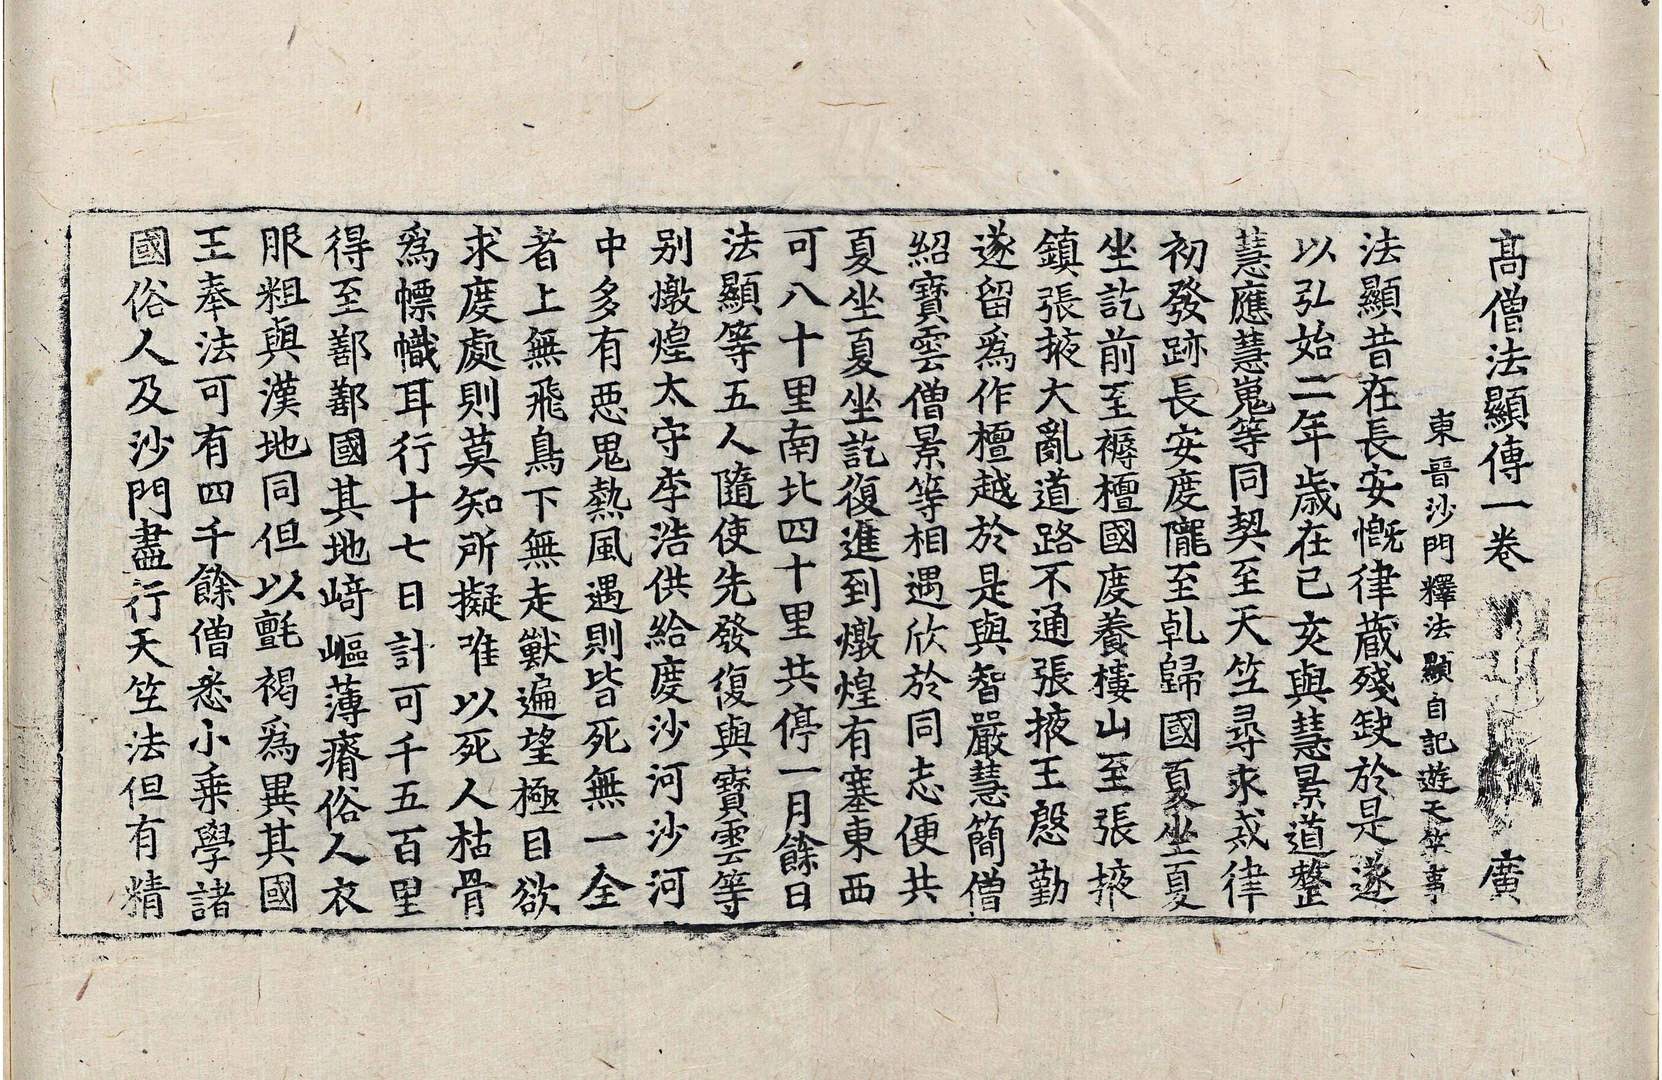 髙僧法顯傳一卷 廣
東晉沙門釋法顯自記遊天竺事
法顯昔在長安慨律藏殘缺於是遂
以弘始二年歲在己亥與慧景道整
慧應慧嵬等同契至天竺尋求戒律
初發跡長安度隴至乹歸國夏坐夏
坐訖前至褥檀國度養樓山至張掖
鎮張掖大亂道路不通張掖王慇勤
遂留爲作檀越於是與智嚴慧簡僧
紹寶雲僧景等相遇欣於同志便共
夏坐夏坐訖復進到燉煌有塞東西
可八十里南北四十里共停一月餘日
法顯等五人隨使先發復與寶雲等
别燉煌太守李浩供給度沙河沙河
中多有惡鬼熱風遇則皆死無一全
者上無飛鳥下無走獸遍望極目欲
求度處則莫知所擬唯以死人枯骨
爲幖幟耳行十七日計可千五百里
得至鄯鄯國其地﨑嶇薄瘠俗人衣
服粗與漢地同但以氈褐爲異其國
王奉法可有四千餘僧悉小乘學諸
國俗人及沙門盡行天竺法但有精